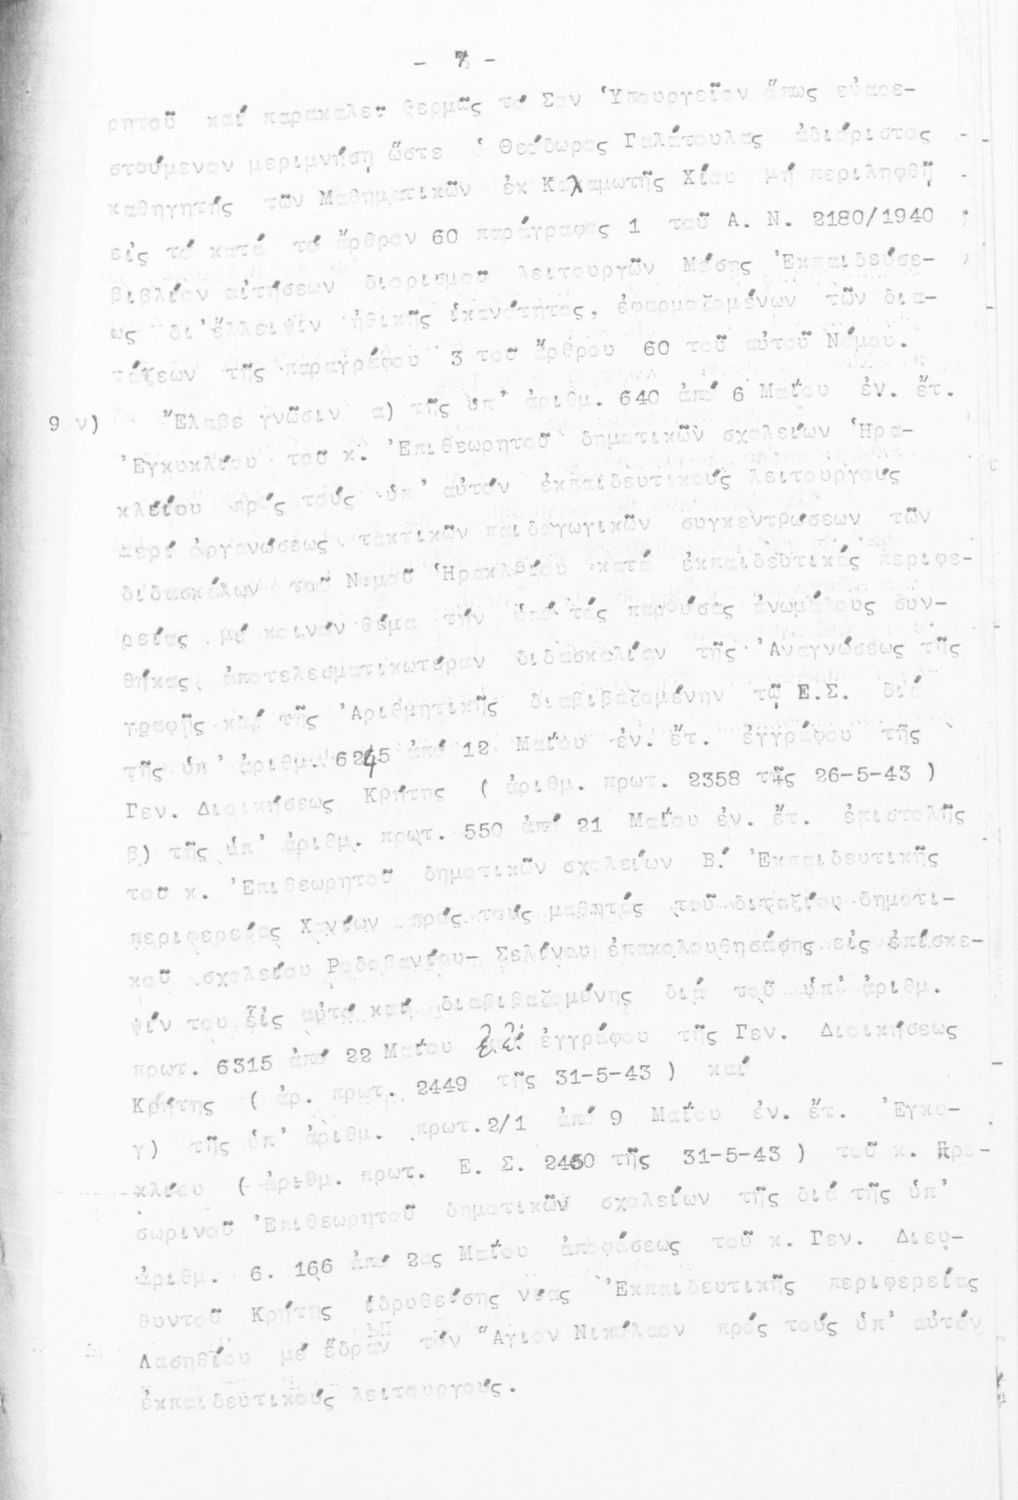 - 7 -
ρητοῦ καί παρακαλεῖ θερμῶς τό Σον Ὑπουργεῖον ὅπως εὐαρε-
στούμενον μεριμνήσῃ ὥστε ὁ Θεόδωρος Γαλάτουλας ἀδιόριστος
καθηγητής τῶν Μαθηματικῶν ἐκ Καλαμωτῆς Χίου μή περιληφθῇ
εἰς τό κατά τό ἄρθρον 60 παράγραφος 1 τοῦ Α. Ν. 2180/1940
βιβλίον αἰτήσεων διορισμοῦ λειτουργῶν Μέσης Ἐκπαιδεύσε-
ως δι' ἔλλειψιν ἠθικῆς ἱκανότητος, ἐφαρμοζομένων τῶν δια-
τάξεων τῆς παραγράφου 3 τοῦ ἄρθρου 60 τοῦ αὐτοῦ Νόμου.
9 ν) Ἔλαβε γνῶσιν α) τῆς ὑπ' ἀριθμ. 640 ἀπό 6 Μαΐου ἐν. ἔτ.
Ἐγκυκλίου τοῦ κ. Ἐπιθεωρητοῦ δημοτικῶν σχολείων Ἡρα-
κλείου πρός τούς ὑπ' αὐτόν ἐκπαιδευτικούς λειτουργούς
περί ὀργανώσεως τακτικῶν παιδαγωγικῶν συγκεντρώσεων τῶν
διδασκάλων τοῦ Νομοῦ Ἡρακλείου κατά ἐκπαιδευτικάς περιφε-
ρείας μέ κοινόν θέμα τήν ὑπό τάς παρούσας ἀνωμάλους συν-
θήκας ἀποτελεσματικωτέραν διδασκαλίαν τῆς Ἀναγνώσεως τῆς
γραφῆς καί τῆς Ἀριθμητικῆς διαβιβαζομένην τῷ Ε.Σ. διά
τῆς ὑπ' ἀριθμ. 6245 ἀπό 12 Μαΐου ἐν. ἔτ. ἐγγράφου τῆς
Γεν. Διοικήσεως Κρήτης ( ἀριθμ. πρωτ. 2358 τῆς 26-5-43 )
β) τῆς ὑπ' ἀριθμ. πρωτ. 550 ἀπό 21 Μαΐου ἐν. ἔτ. ἐπιστολῆς
τοῦ κ. Ἐπιθεωρητοῦ δημοτικῶν σχολείων Β. Ἐκπαιδευτικῆς
περιφερείας Χανίων πρός τούς μαθητάς τοῦ διταξίου δημοτι-
κοῦ σχολείου Ροδοβανίου- Σελίνου ἐπακολουθησάσης εἰς ἐπίσκε-
ψίν του εἰς αὐτό καί διαβιβαζομένης διά τοῦ ὑπ' ἀριθμ.
πρωτ. 6315 ἀπό 22 Μαΐου ἐγγράφου τῆς Γεν. Διοικήσεως
Κρήτης ( ἀρ. πρωτ. 2449 τῆς 31-5-43 ) καί
γ) τῆς ὑπ' ἀριθμ. πρωτ.2/1 ἀπό 9 Μαΐου ἐν. ἔτ. Ἐγκυ-
κλίου ( ἀριθμ. πρωτ. Ε. Σ. 2450 τῆς 31-5-43 ) τοῦ κ. Προ-
σωρινοῦ Ἐπιθεωρητοῦ δημοτικῶν σχολείων τῆς διά τῆς ὑπ'
ἀριθμ. 6. 166 ἀπό 2ας Μαΐου ἀποφάσεως τοῦ κ. Γεν. Διευ-
θυντοῦ Κρήτης ἱδρυθείσης νέας Ἐκπαιδευτικῆς περιφερείας
Λασηθίου μέ ἕδραν τόν Ἅγιον Νικόλαον πρός τούς ὑπ' αὐτόν
ἐκπαιδευτικούς λειτουργούς.